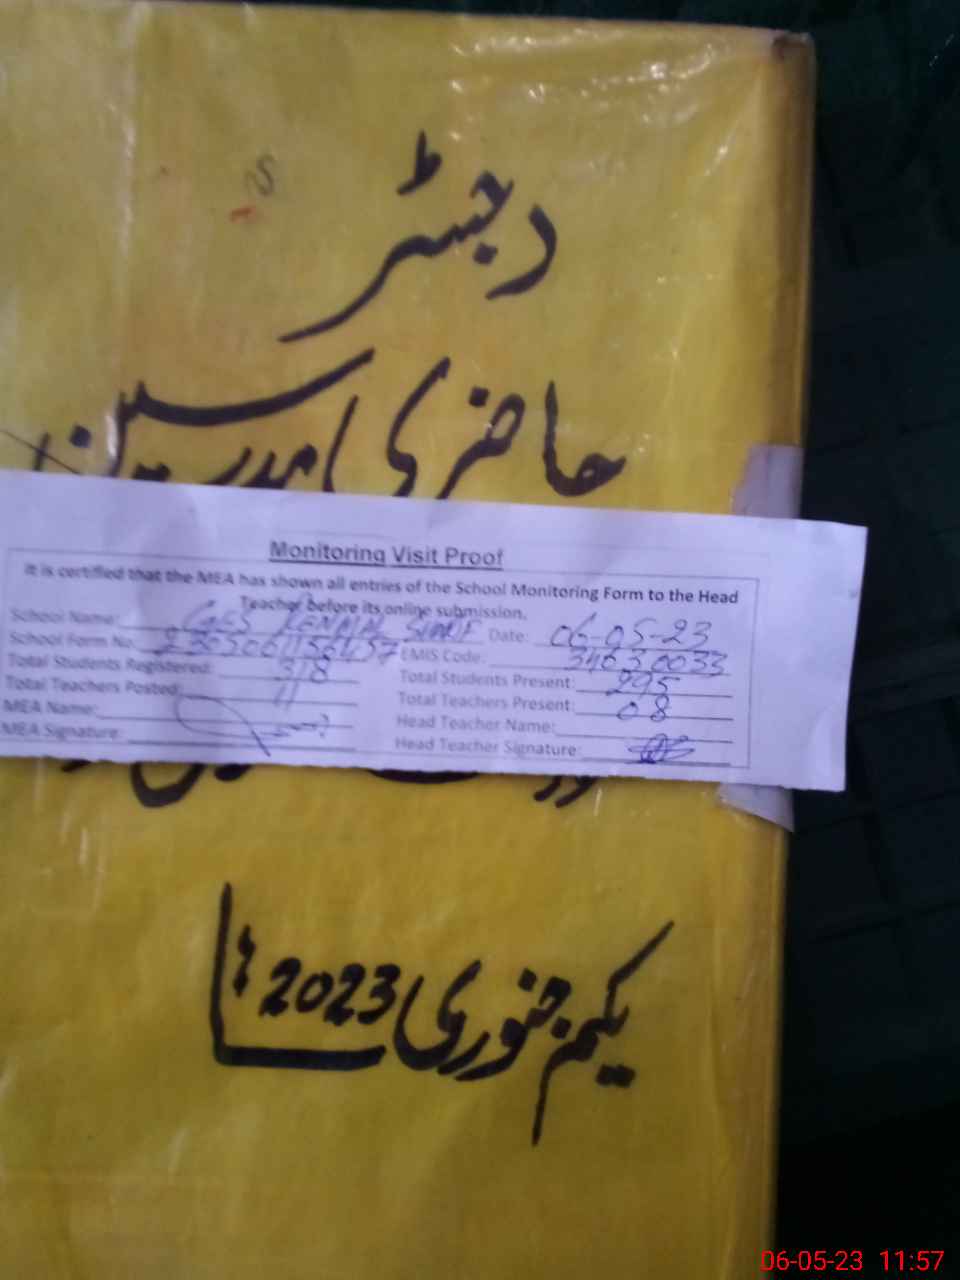 رجسٹر
حاضری مدرسین
Monitoring Visit Proof
It is certified that the MEA has shown all entries of the School Monitoring Form to the Head
Teacher before its online submission.
School Name: Date: 06-05-23
School Form No: EMIS Code: 34630033
Total Students Registered: 318 Total Students Present: 295
Total Teachers Posted: 11 Total Teachers Present: 08
MEA Name: Head Teacher Name:
MEA Signature: Head Teacher Signature:
یکم جنوری 2023 تا
06-05-23 11:57